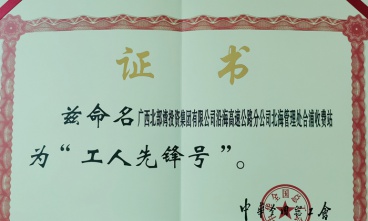 证书
兹命名广西北部湾投资集团有限公司沿海高速公路分公司北海管理处合浦收费站
为“工人先锋号”。